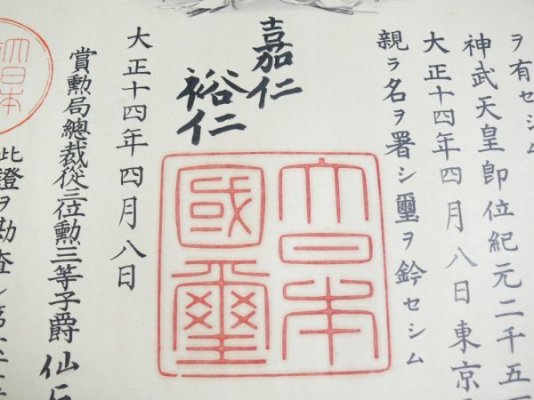 ヲ有セシム
神武天皇即位紀元二千五
大正十四年四月八日東京
親ラ名ヲ署シ璽ヲ鈐セシム
嘉仁
裕仁
大日本
國璽
大正十四年四月八日
賞勲局總裁從三位勲三等子爵仙
此證ヲ勘査シ第
大日本